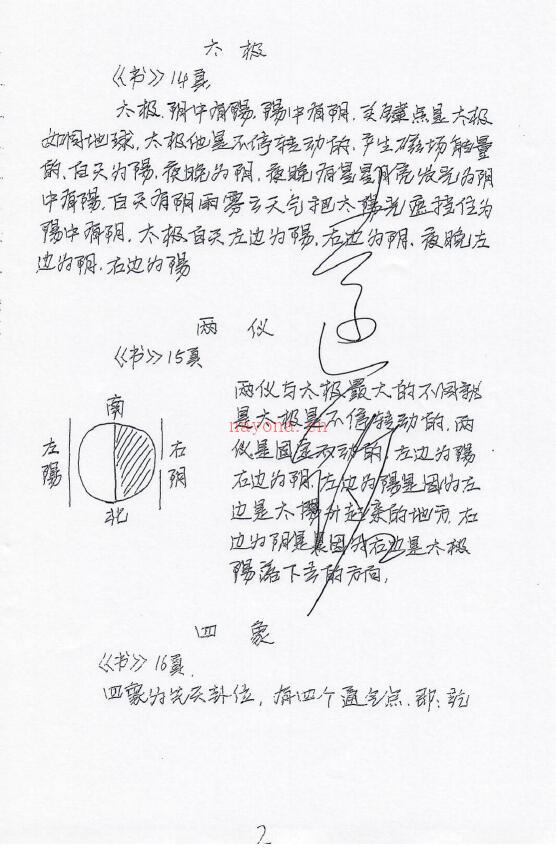 太极
《书》14页
太极.阴中有陽,陽中有阴.关键点是太极
如同地球.太极他是不停转动的.产生磁场能量
的.白天为陽.夜晚为阴.夜晚有星星月亮发光为阴
中有陽.白天有阴雨雾云天气把太陽光遮挡住为
陽中有阴.太极白天左边为陽.右边为阴.夜晚左
边为阴.右边为陽
两仪
《书》15页
南
左陽
右阴
北
两仪与太极最大的不同就
是太极是不停转动的.两
仪是固定不动的.左边为陽
右边为阴.左边为陽是因为左
边是太陽升起来的地方.右
边为阴是因为右边是太极
陽落下去的方向.
nayona.cn
四象
《书》16页.
四象为先天卦位,有四个通气点.即:乾
2